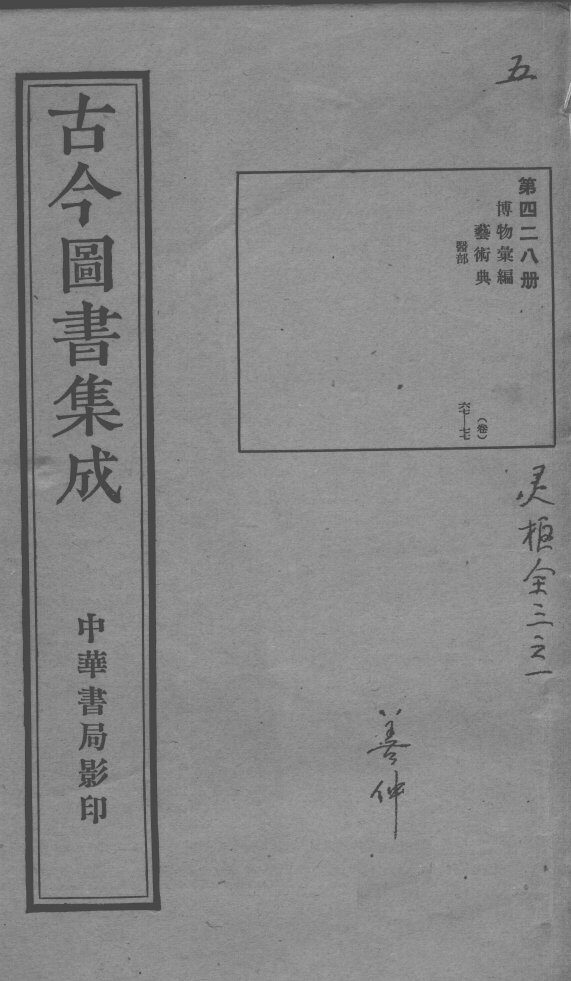 五
第四二八册
博物彙編
藝術典
醫部
(卷)
六七—七七
灵樞全三之一
善仲
古今圖書集成
中華書局影印